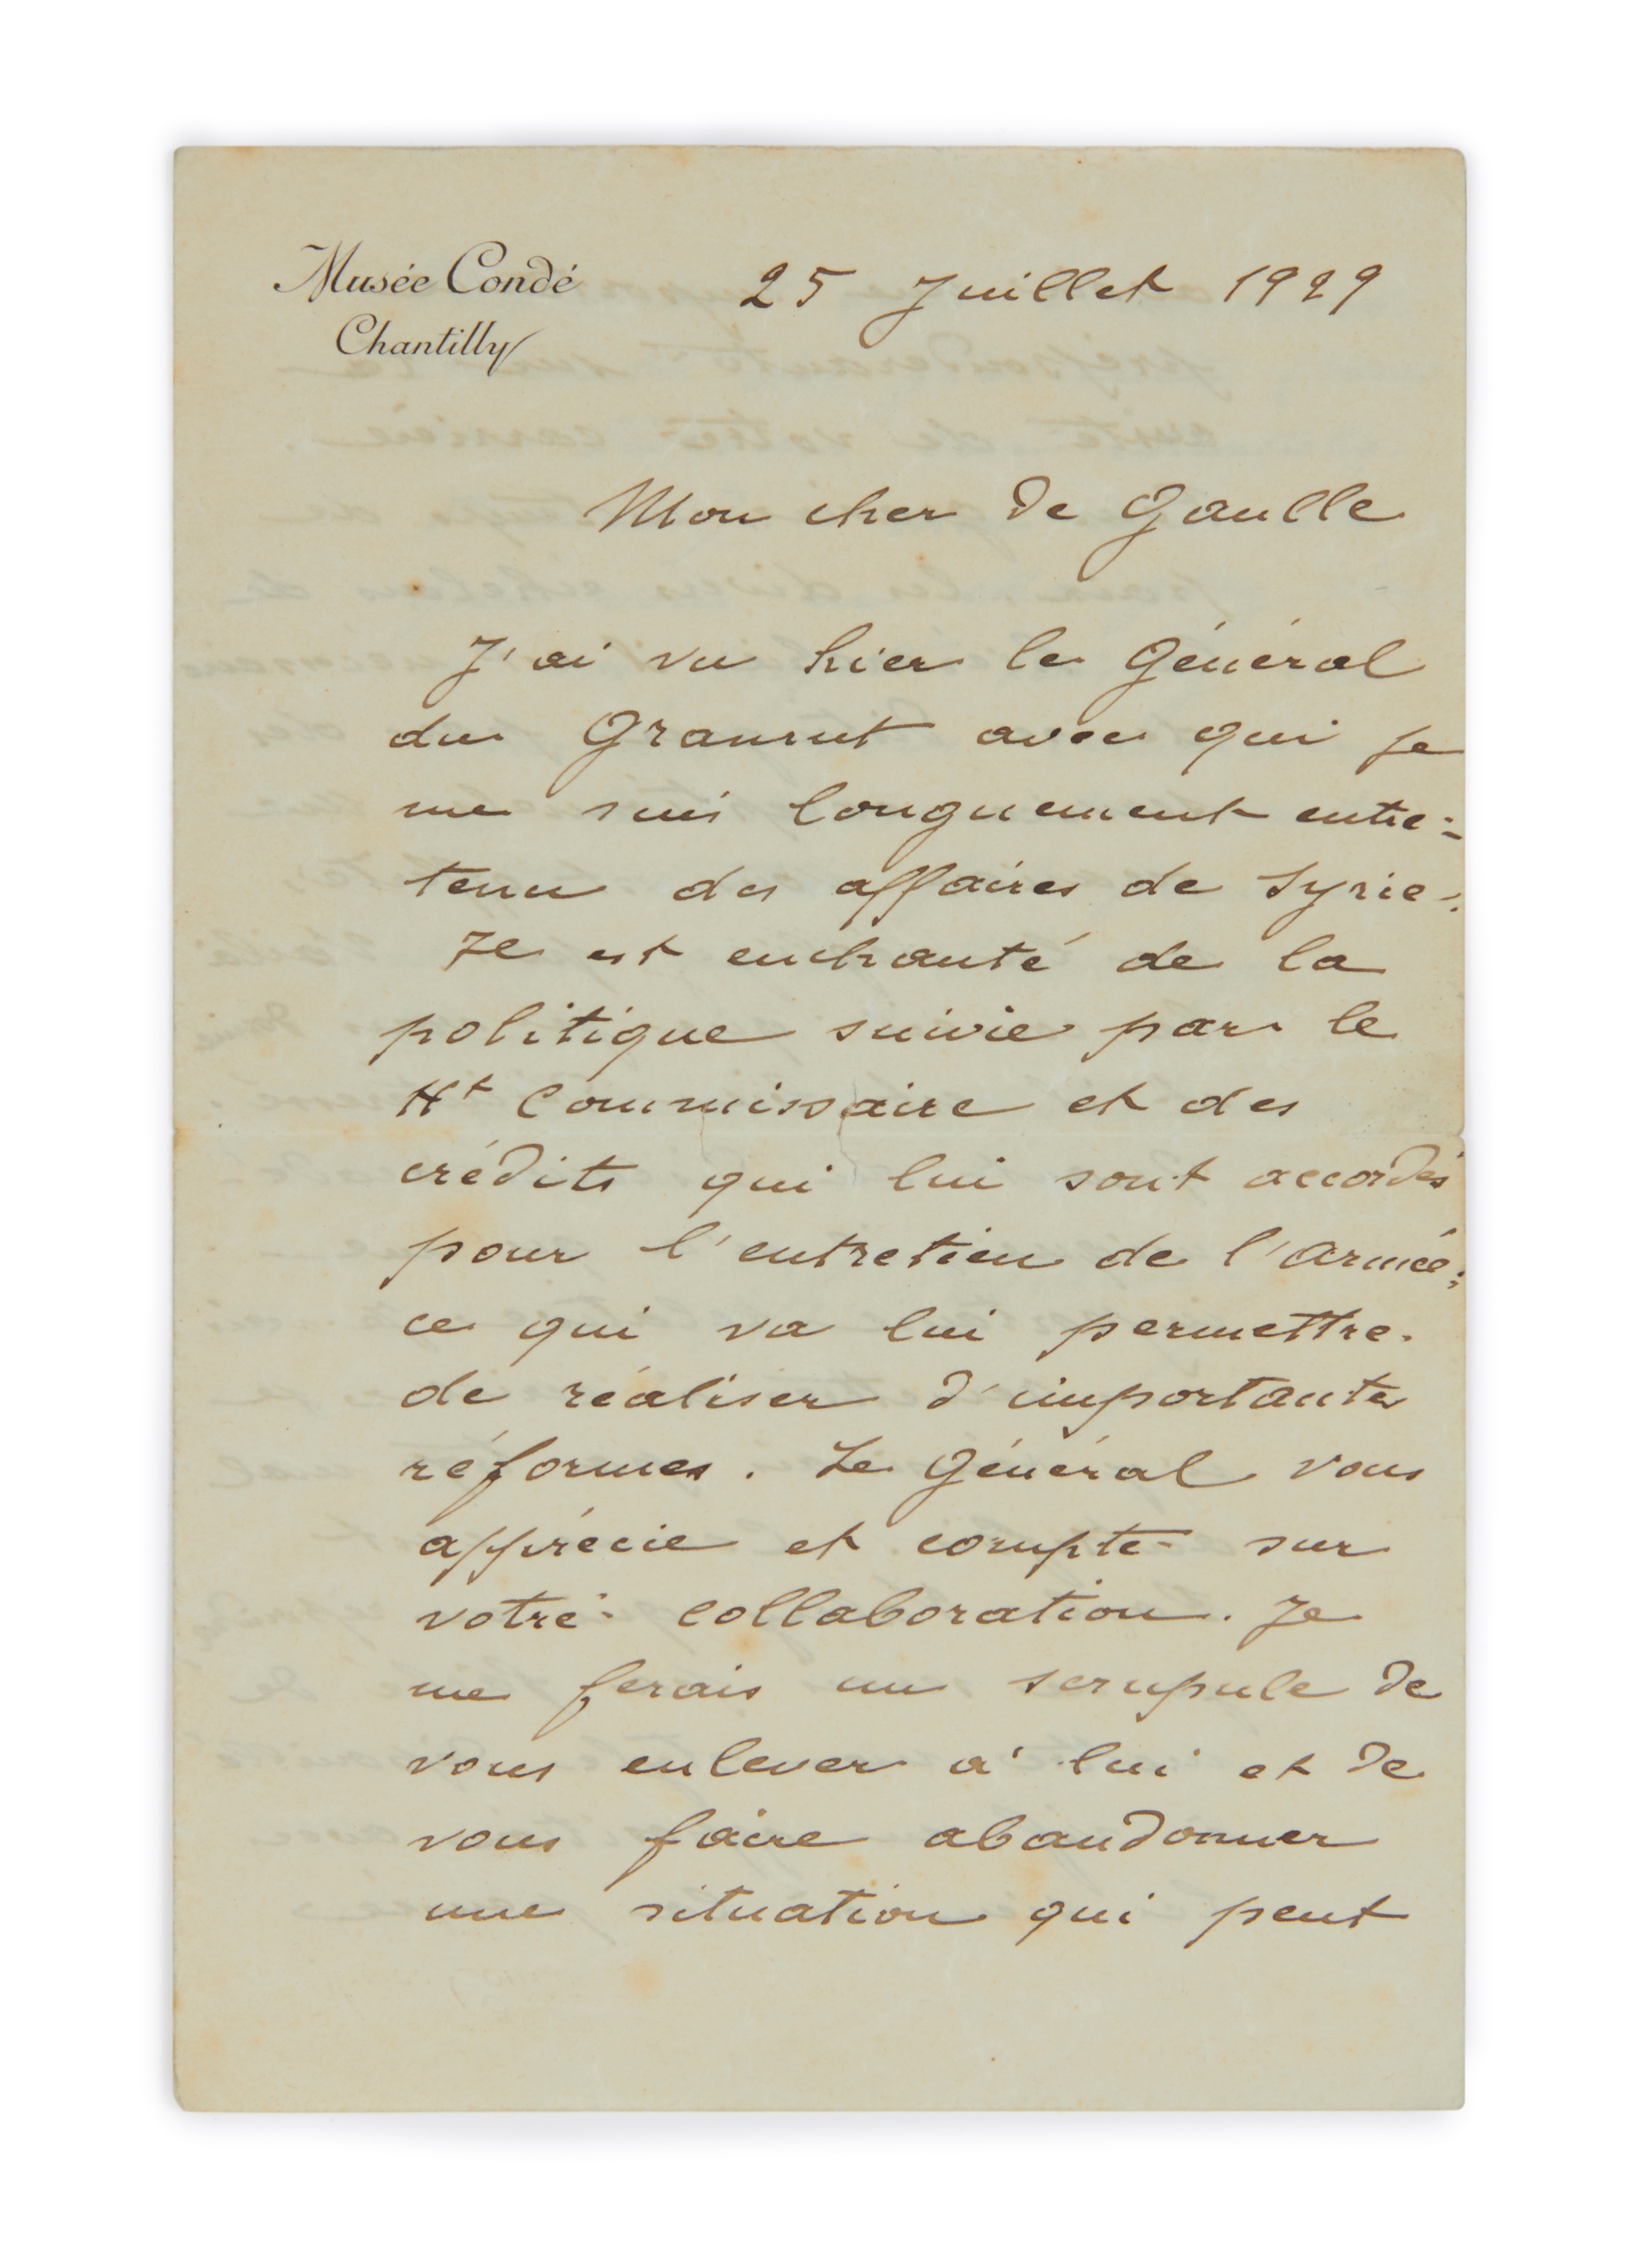 Musée Condé
Chantilly
25 Juillet 1929
Mon cher de Gaulle
J'ai vu hier le Général
du Granrut avec qui je
me suis longuement entre=
tenu des affaires de Syrie.
Il est enchanté de la
politique suivie par le
Ht Commissaire et des
crédits qui lui sont accordés
pour l'entretien de l'armée;
ce qui va lui permettre
de réaliser d'importantes
réformes. Le Général vous
apprécie et compte sur
votre collaboration. Je
me ferais un scrupule de
vous enlever à lui et de
vous faire abandonner
une situation qui peut